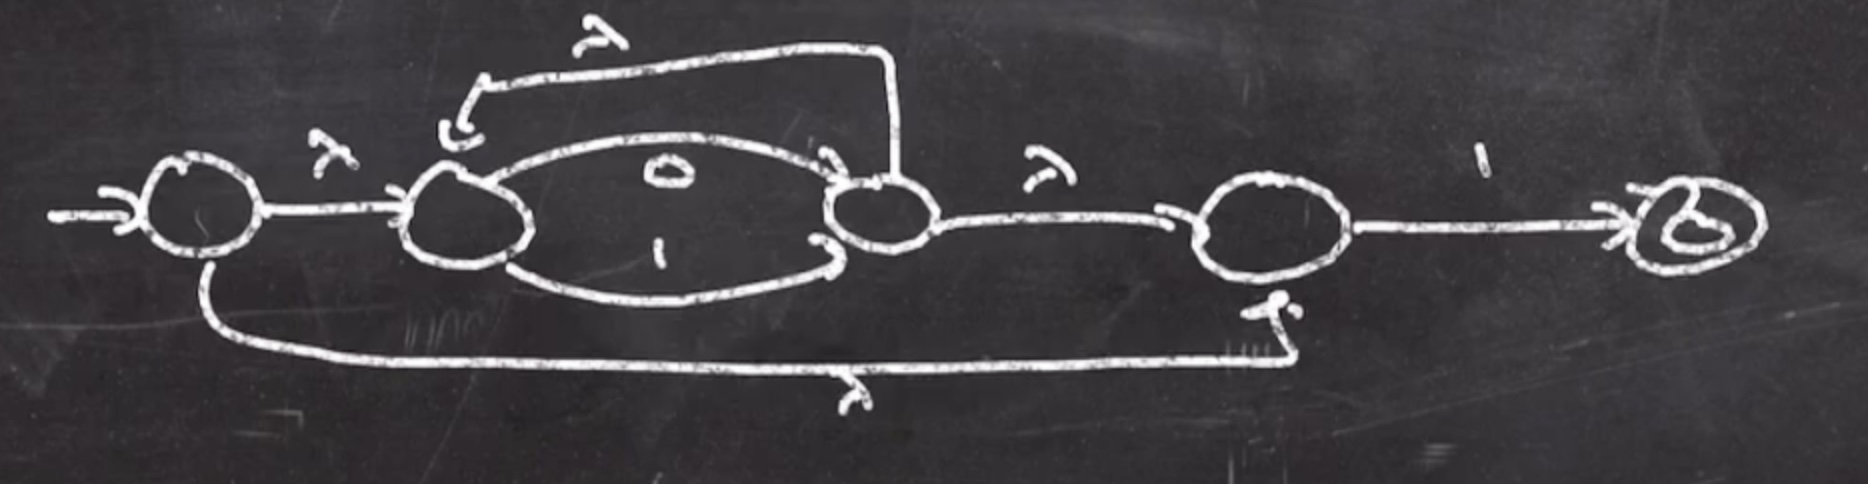 λ
λ
0
λ
1
1
λ